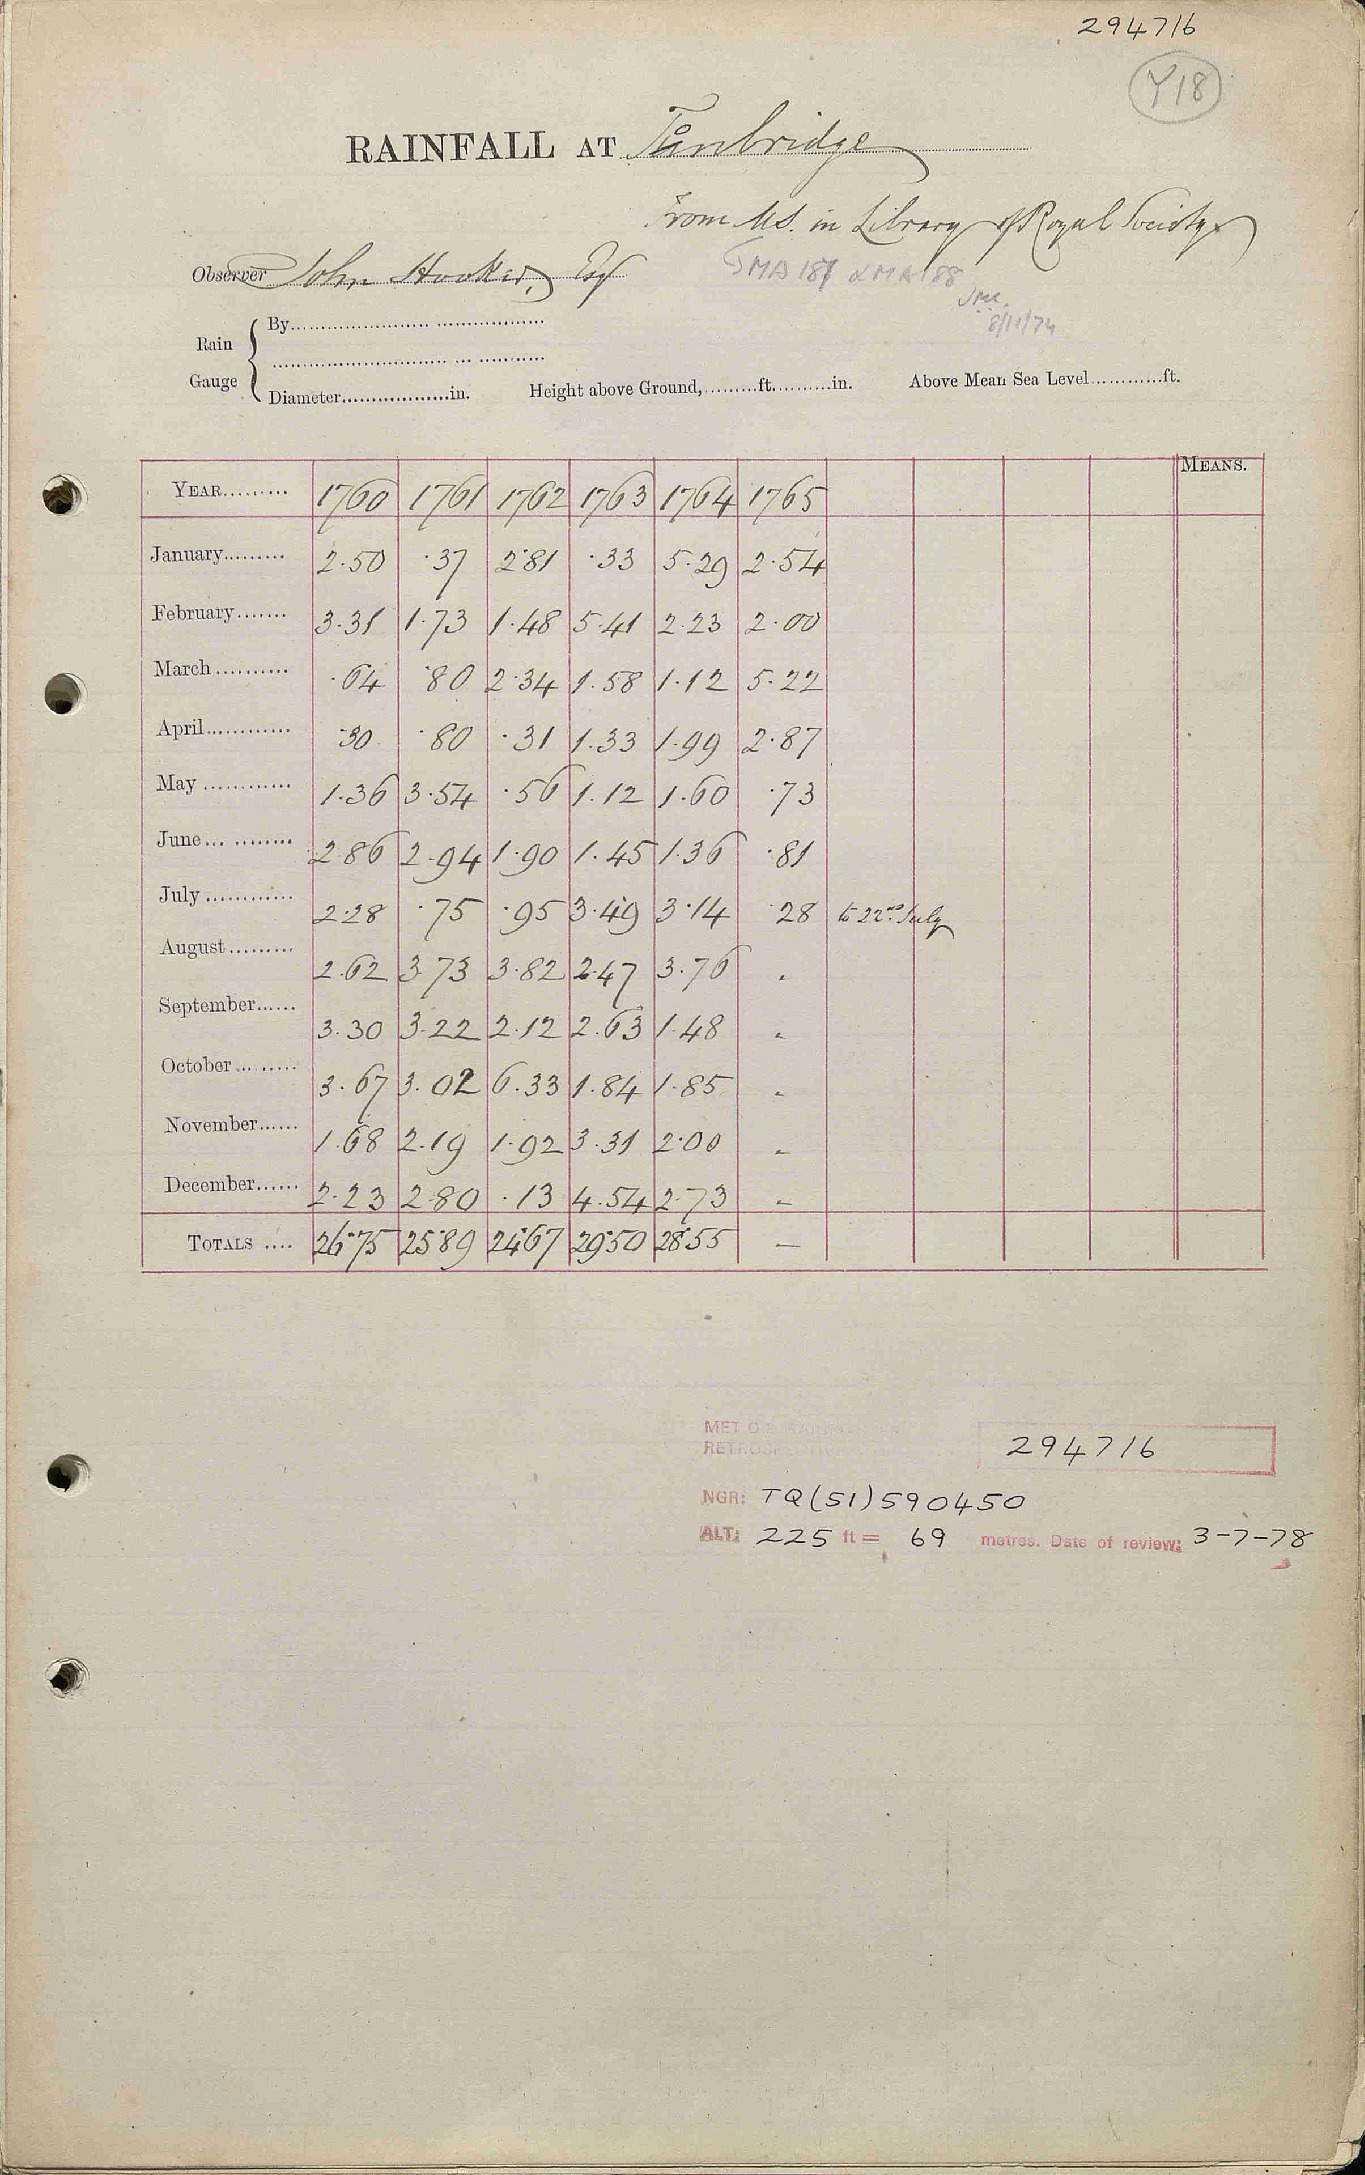 294716
Y18
RAINFALL AT Tunbridge
From MS. in Library of Royal Society
Observer John Hooker, Esq
MA 187 & MA 188
8/11/74
Rain Gauge
By
Diameter in. Height above Ground, ft. in. Above Mean Sea Level ft.
YEAR 1760 1761 1762 1763 1764 1765 MEANS.
January 2.50 .37 2.81 .33 5.29 2.54
February 3.31 1.73 1.48 5.41 2.23 2.00
March .64 .80 2.34 1.58 1.12 5.22
April .30 .80 .31 1.33 1.99 2.87
May 1.36 3.54 .56 1.12 1.60 .73
June 2.86 2.94 1.90 1.45 1.36 .81
July 2.28 .75 .95 3.49 3.14 .28 to 22nd July
August 2.62 3.73 3.82 2.47 3.76 -
September 3.30 3.22 2.12 2.63 1.48 -
October 3.67 3.02 6.33 1.84 1.85 -
November 1.68 2.19 1.92 3.31 2.00 -
December 2.23 2.80 .13 4.54 2.73 -
TOTALS 26.75 25.89 24.67 29.50 28.55 —
MET O 8
294716
NGR: TQ(51)590450
ALT: 225 ft = 69 metres. Date of review: 3-7-78